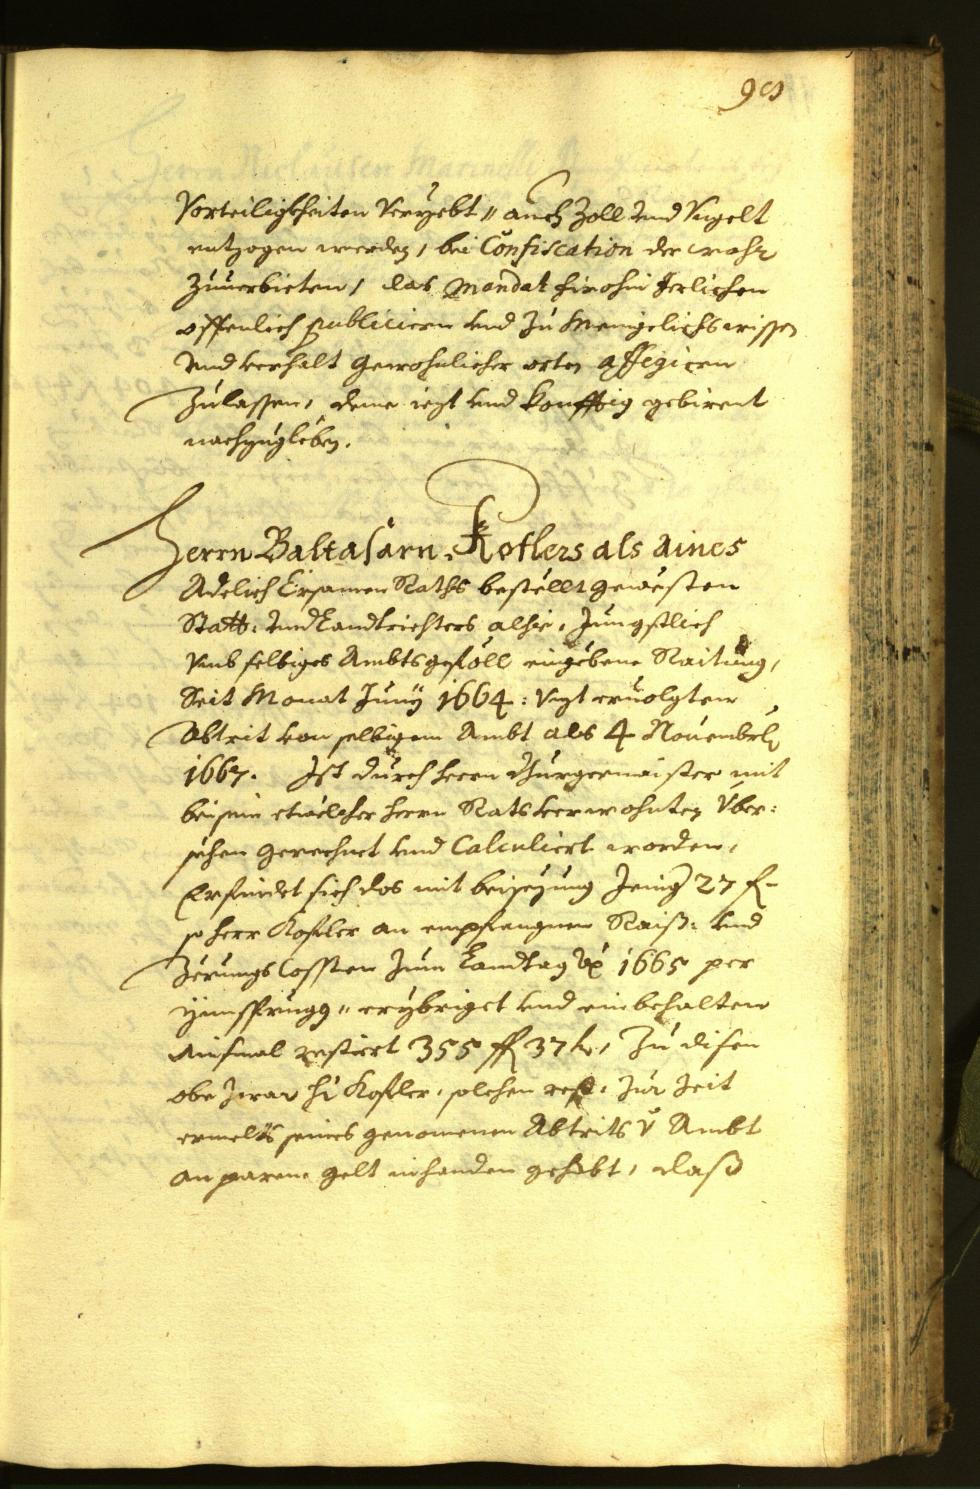 Vorteiligkheiten veryebt, auch Zoll vnd Vngelt
entzogen werden, bei Confiscation der wahr
Zuuerbieten, das Mandat hirohin Jerlichen
offenlich publiciern vnd Zu Menigelichs wissen
vnd verhalt gewohnlicher orten affigiern
Zulassen, deme iezt vnd konfftig gebirent
nachzugleben.
Herrn Baltasarn Koflers als aines
Adelich Ersamen Raths bestellt gewesten
Statt: vnd Landtrichters alhie, Jungstlich
vmb selbiges Ambtsgeföll eingebene Raitung,
Seit Monat Junÿ 1664: vnzt eruolgten
Abtrit von selbigem Ambt als 4 Nouembris
1667. Ist durch herrn Burgermaister mit
beisein etwelcher herrn Rats verwohnten Vber:
sehen gerechnet vnd Calculiert worden,
Erfindet sich das mit beisezung Jenig 27 f
so herr Kofler an empfangnen Raiß: vnd
Zörungs Cossten Zum Landtag 1665 per
Ynnsprugg, erybriget vnd einbehalten
Ausmal restiert 355 f 37 kr, Zu disem
obe Zwar hr Kofler, solchen rest, Zur Zeit
ermelts seines genomenen Abtrits v Ambt
an parem gelt inhanden gehabt, daß